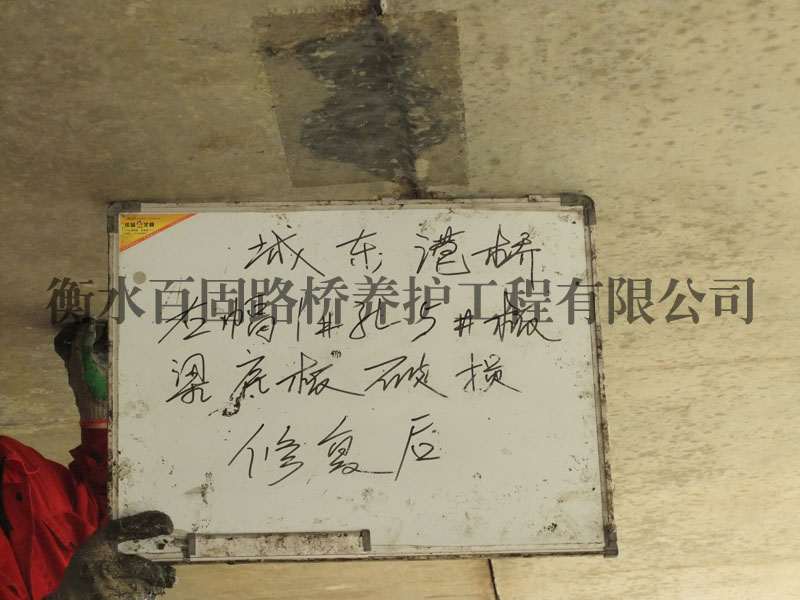 城东港桥
衡水百固路桥养护工程有限公司
左幅1#孔5#板
梁底板破损
修复后